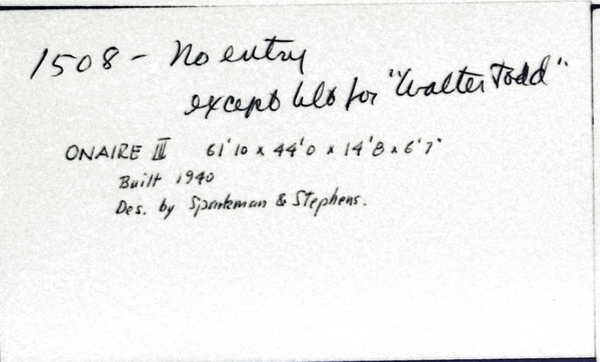 1508 - No entry
except blt for "Walter Todd"
ONAIRE III 61'10 x 44'0 x 14'8 x 6'7"
Built 1940
Des. by Sparkman & Stephens.